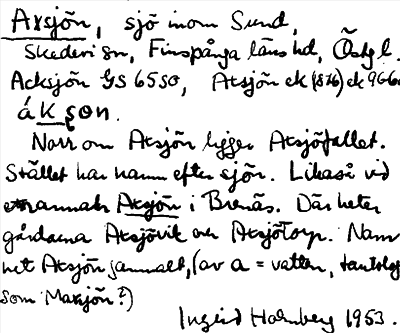 Axsjön, sjö inom Sund,
Skedevi sn, Finspånga läns hd, Östgl.
Acksjön GS 6SSO, Axsjön ek (1876) ek 966
åkʃọn.
Norr om Axsjön ligger Axsjöfallet.
Stället har namn efter sjön. Likaså vid
en annan Axsjön i Brenäs. Där heter
gårdarna Axsjövik och Axsjötorp. Nam
net Axsjön gammalt, (av a = vatten, tautolog
som Marsjön?)
Ingrid Holmberg 1953.